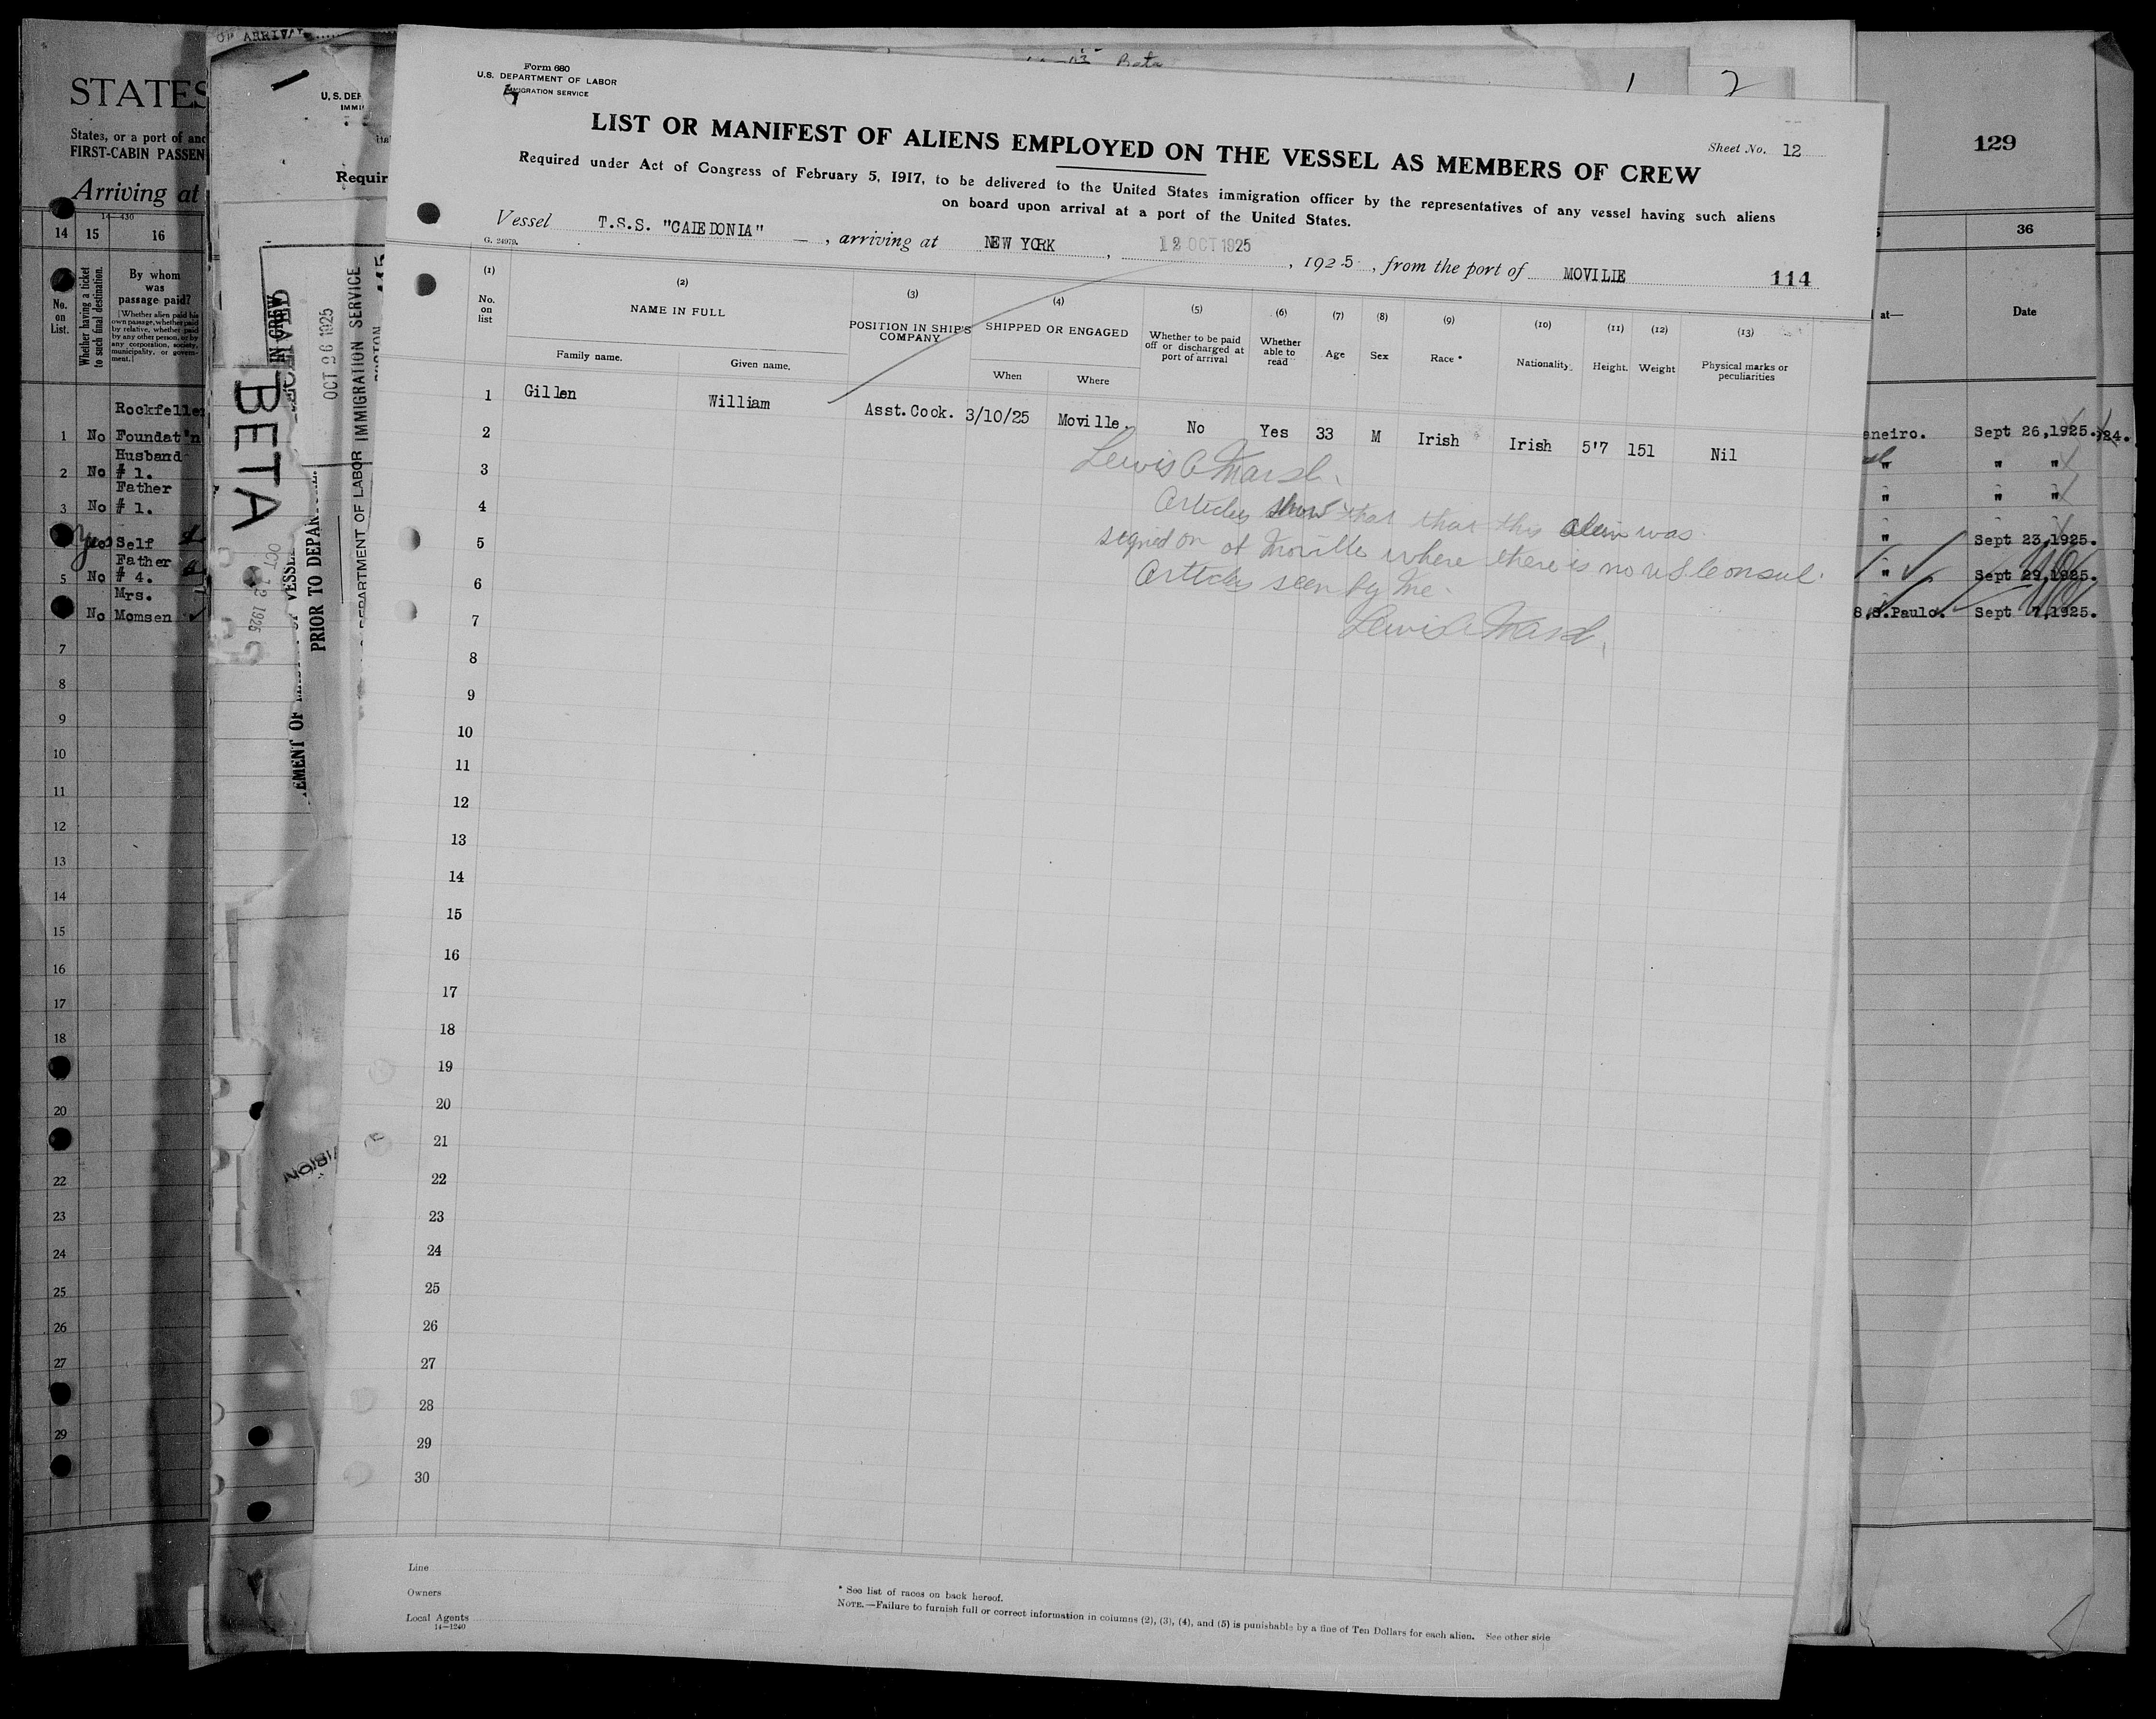 STATES
States, or a port of
FIRST-CABIN
Arriving at
14-430
14 15 16
No.
on
List.
Whether having a ticket
to such final destination.
By whom
was
passage paid?
Rockfeller
1 No Foundat'n
Husband
2 No # 1.
Father
3 No # 1.
Self
Father
5 No # 4.
Mrs.
No Momsen
7
8
9
10
11
12
13
14
15
16
17
18
20
21
22
23
24
25
26
27
28
29
BETA
OCT 26 1925
DEPARTMENT OF LABOR IMMIGRATION SERVICE
OCT 12 1925
PRIOR TO
Form 680
U.S. DEPARTMENT OF LABOR
IMMIGRATION SERVICE
LIST OR MANIFEST OF ALIENS EMPLOYED ON THE VESSEL AS MEMBERS OF CREW
Sheet No. 12
Required under Act of Congress of February 5, 1917, to be delivered to the United States immigration officer by the representatives of any vessel having such aliens
on board upon arrival at a port of the United States.
Vessel T.S.S. "CAIEDONIA" , arriving at NEW YORK , 12 OCT 1925 , 1925 , from the port of MOVILIE
G. 24979.
114
(1) (2) (3) (4) (5) (6) (7) (8) (9) (10) (11) (12) (13)
No.
on
list
NAME IN FULL
Family name. Given name.
POSITION IN SHIP'S
COMPANY
SHIPPED OR ENGAGED
When Where
Whether to be paid
off or discharged at
port of arrival
Whether
able to
read
Age Sex Race * Nationality. Height. Weight
Physical marks or
peculiarities
1 Gillen William Asst.Cook. 3/10/25 Moville. No Yes 33 M Irish Irish 5'7 151 Nil
2
3
4 Articles show that that this alien was
5 signed on at Moville where there is no US Consul.
6 Articles seen by me.
7
8
9
10
11
12
13
14
15
16
17
18
19
20
21
22
23
24
25
26
27
28
29
30
Line
Owners
Local Agents
14-1240
* See list of races on back hereof.
NOTE.—Failure to furnish full or correct information in columns (2), (3), (4), and (5) is punishable by a fine of Ten Dollars for each alien. See other side
129
36
at—
Date
Sept 26,1925.
Sept 23,1925.
Sept 29,1925.
S.Paulo. Sept 7,1925.